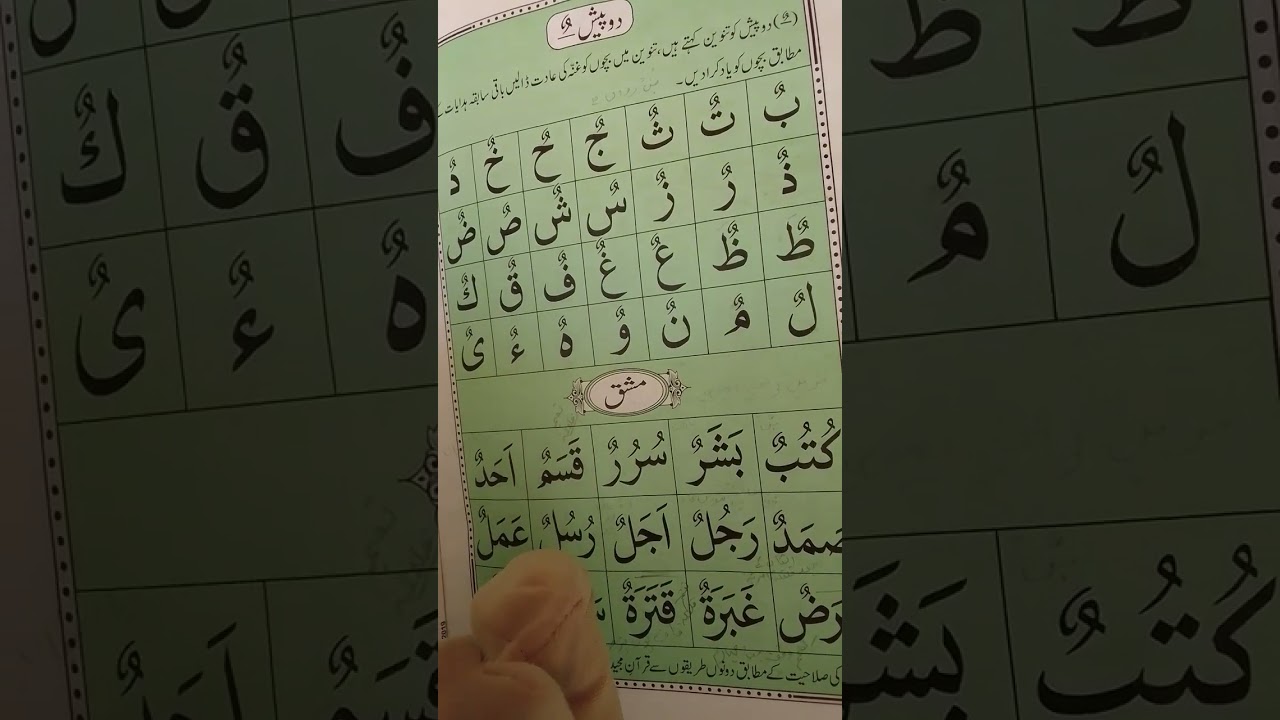 دو پیش ◌ٌ
(◌ٌ) دو پیش کو تنوین کہتے ہیں، تنوین میں بچوں کو غنّہ کی عادت ڈالیں باقی سابقہ ہدایات کے
مطابق بچوں کو یاد کرا دیں۔
بٌ تٌ ثٌ جٌ حٌ خٌ دٌ
ذٌ رٌ زٌ سٌ شٌ صٌ ضٌ
طٌ ظٌ عٌ غٌ فٌ قٌ كٌ
لٌ مٌ نٌ وٌ هٌ ءٌ یٌ
مشق
كُتُبٌ بَشَرٌ سُرُرٌ قَسَمٌ اَحَدٌ
صَمَدٌ رَجُلٌ اَجَلٌ رُسُلٌ عَمَلٌ
غَبَرَةٌ قَتَرَةٌ
کی صلاحیت کے مطابق دونوں طریقوں سے قرآن مجید